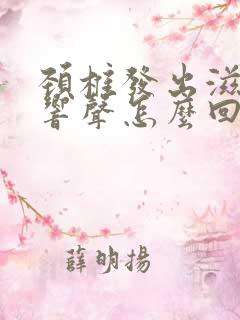 頚椎發出滋
響聲怎麼回
薛明揚